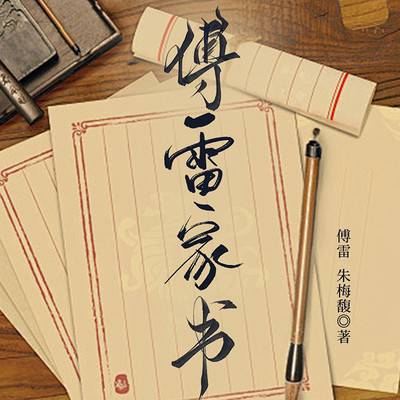 傅雷家书
傅雷 朱梅馥◎著